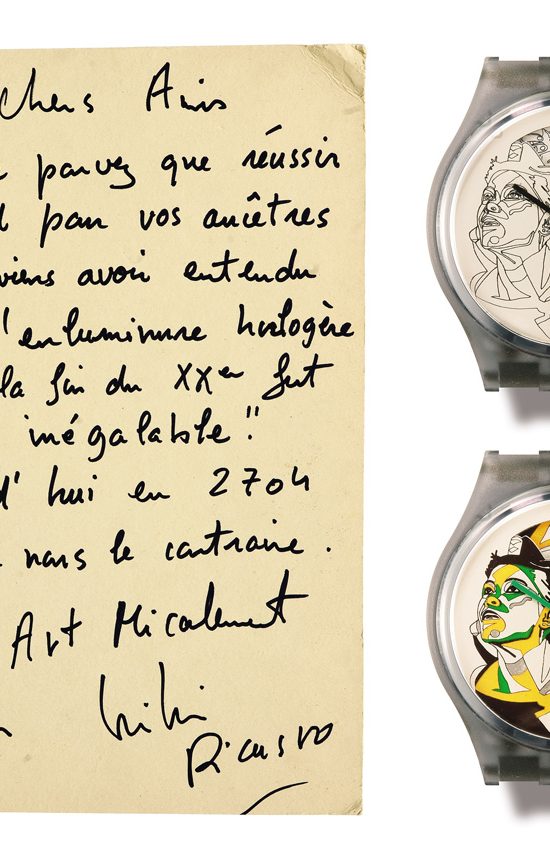 Chers Amis
pouvez que réussir
par vos ancêtres
viens avoir entendu
l'enluminure horlogère
la fin du XXem fut
inégalable"
d'hui en 2704
nous le contraire.
Art Micalement
Kiki
Picasso